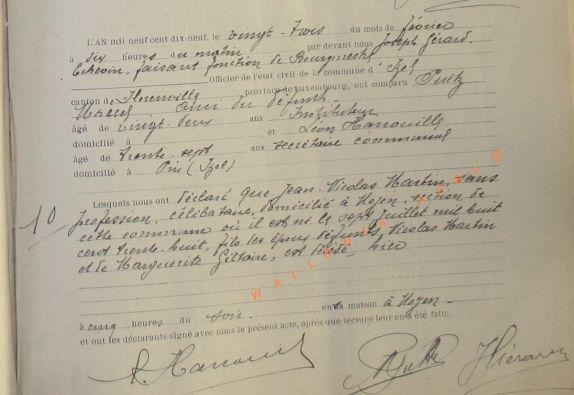 L'AN mil neuf cent dix-neuf, le vingt-trois du mois de février
à dix heures du matin par devant nous Joseph Gérard
Echevin, faisant fonction de Bourgmestre
Officier de l'état civil de la commune d'Izel
canton de Florenville province de Luxembourg, ont comparu Putz
Marcel ami du défunt
âgé de vingt deux ans Instituteur
domicilié à et Léon Harrouille
âgé de trente-sept ans secrétaire communal
domicilié à Pin (Izel)
Lesquels nous ont déclaré que Jean-Nicolas Martin, sans
10
profession, célibataire, domicilié à Moyen, section de
cette commune où il est né le sept juillet mil huit
cent trente-huit, fils des époux défunts Nicolas Martin
et de Marguerite Giltaire, est décédé, hier
à cinq heures du soir en maison à Moyen
et ont les déclarants signé avec nous le présent acte, après que lecture leur en a été faite.